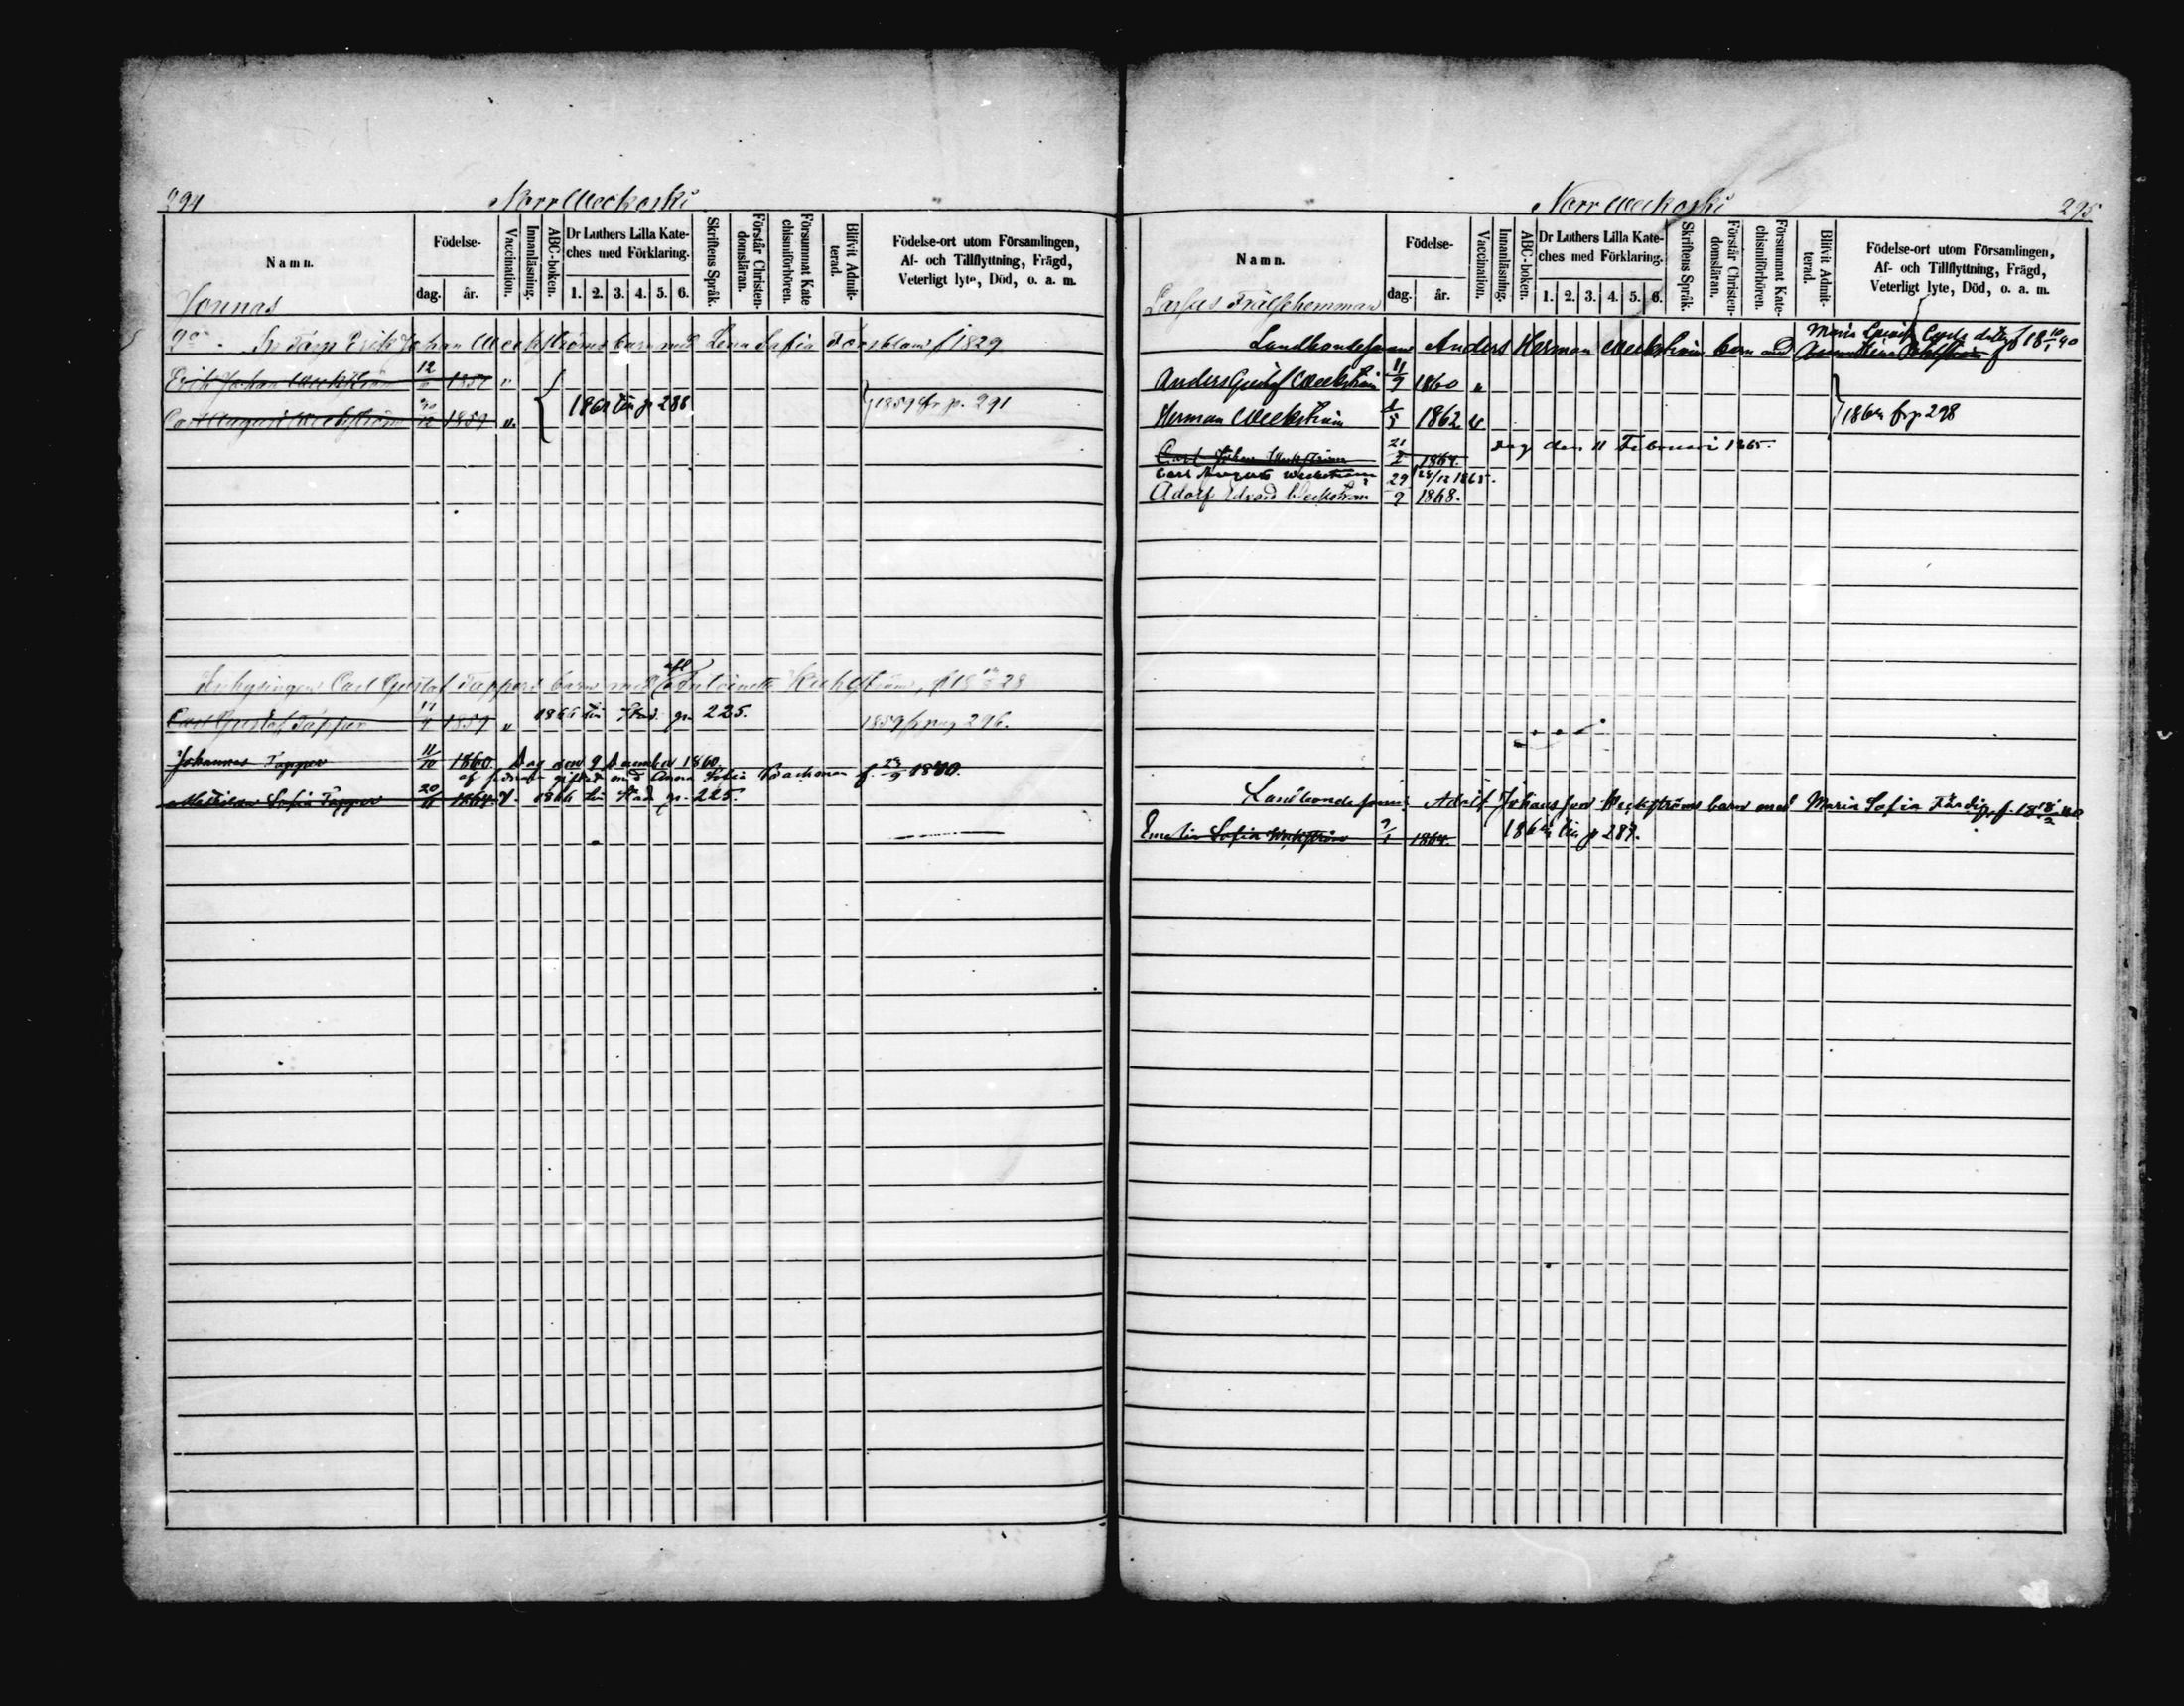 294
Norr Weckoski
Namn.
Födelse-
dag.
år.
Vaccination.
Innanläsning.
ABC-boken.
Dr Luthers Lilla Kate-
ches med Förklaring.
1. 2. 3. 4. 5. 6.
Skriftens Språk.
Förstår Christen-
domsläran.
Försummat Kate-
chismiförhören.
Blifvit Admit-
terad.
Födelse-ort utom Församlingen,
Af- och Tillflyttning, Frägd,
Veterligt lyte, Död, o. a. m.
Jonnas
Torp Erik Johan Weckströms barn med Lena Sofia Forsblom f 1829
Erik Johan Weckström 12 1857 "
1861 till p 288
1859 fr p. 291
Carl August Weckström 1859 "
Carl Gustaf Tappers barn med
Carl Gustaf Tapper 1859 " 1866 till Stad. p. 225. 1859 fr pag 296.
Johannes Tapper 11/10 1860. Dog den 9 December 1860.
gifted med Anna Sofia f. 1840.
Sofia Tapper 20 1864. 1866 till Stad. p. 225.
Norr Weckoski
295
Namn.
Födelse-
dag.
år.
Vaccination.
Innanläsning.
ABC-boken.
Dr Luthers Lilla Kate-
ches med Förklaring.
1. 2. 3. 4. 5. 6.
Skriftens Språk.
Förstår Christen-
domsläran.
Försummat Kate-
chismiförhören.
Blifvit Admit-
terad.
Födelse-ort utom Församlingen,
Af- och Tillflyttning, Frägd,
Veterligt lyte, Död, o. a. m.
Larsas Frälsehemman
Maria Carls dotter f 18 10/1 40
Landbonde Anders Herman Weckström barn med
Anders Gustaf Weckström 11/9 1860 "
Herman Weckström 1/5 1862 v
fr p 298
Carl Johan Weckström 21/2 1864. dog den 11 Februari 1865.
Carl August Weckström 29/12 1865.
Adolf Edvard Weckström 29/9 1868.
Landbonde Adolf Johansson Weckströms barn med Maria Sofia Färdig, f. 18 18/2 40
Emelia Sofia Weckström 1864. till p 289.